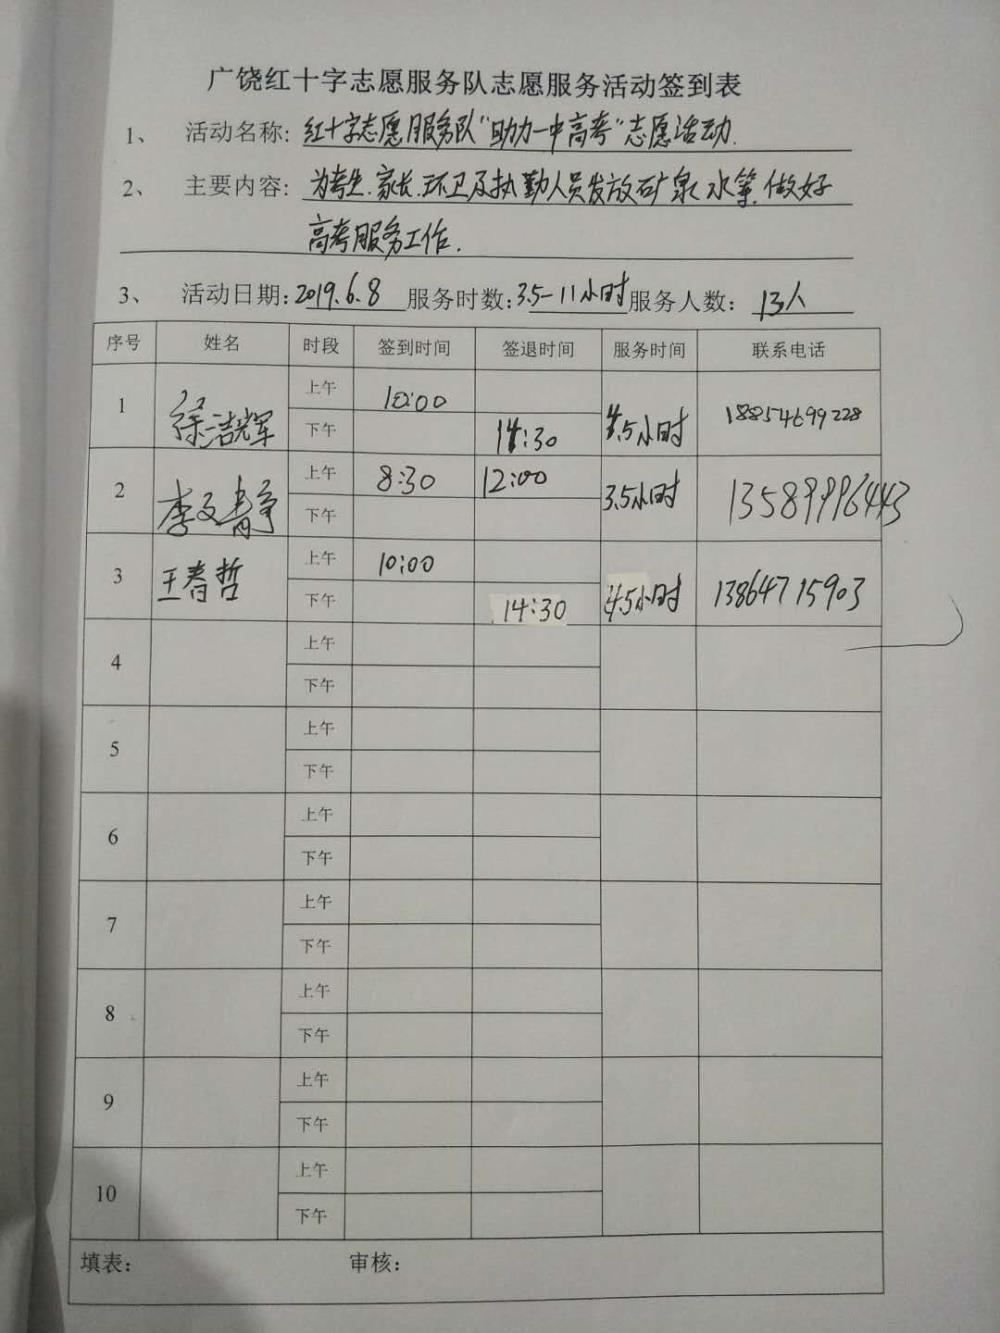 广饶红十字志愿服务队志愿服务活动签到表
1、 活动名称: 红十字志愿服务队"助力一中高考"志愿活动.
2、 主要内容: 为考生.家长.环卫及执勤人员发放矿泉水等.做好
高考服务工作.
3、 活动日期: 2019.6.8 服务时数: 3.5-11小时 服务人数: 13人
序号 姓名 时段 签到时间 签退时间 服务时间 联系电话
1 徐洁辉 上午 10:00 4.5小时 18854699228
下午 14:30
2 李文静 上午 8:30 12:00 3.5小时 13589996443
下午
3 王春哲 上午 10:00 4.5小时 13864715903
下午 14:30
4 上午
下午
5 上午
下午
6 上午
下午
7 上午
下午
8 上午
下午
9 上午
下午
10 上午
下午
填表: 审核: